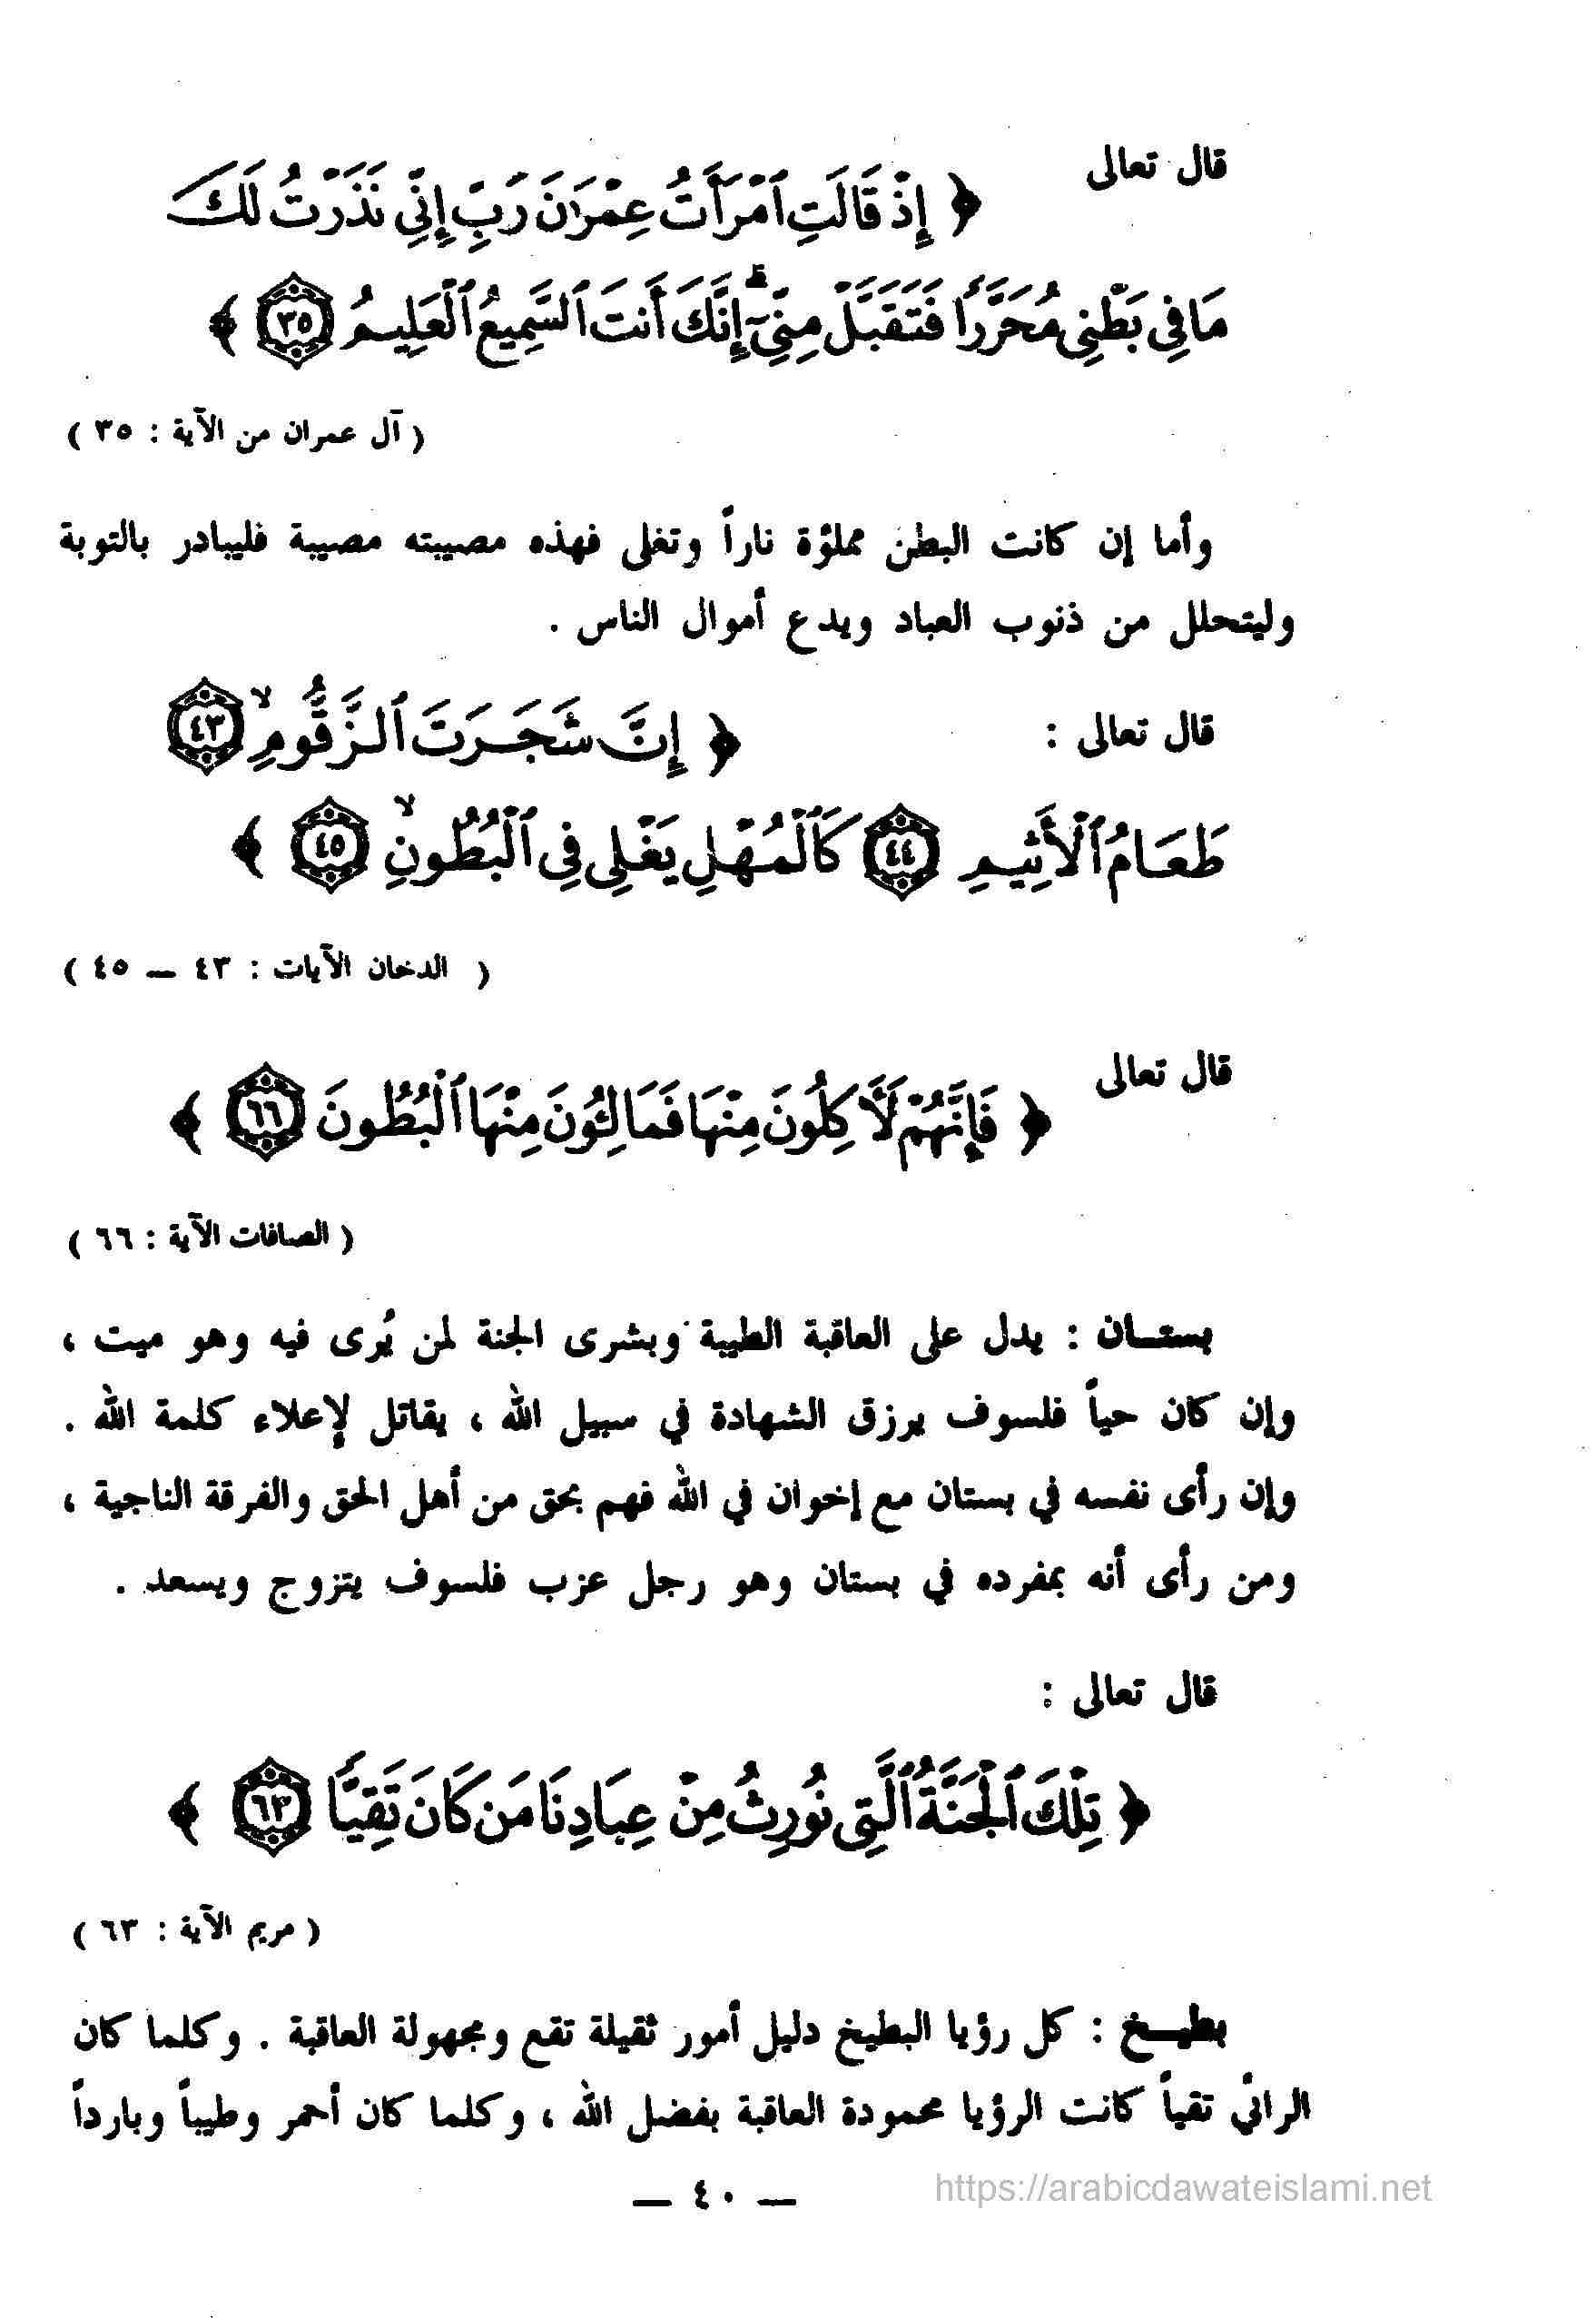 قال تعالى
﴿ إِذْ قَالَتِ ٱمْرَأَتُ عِمْرَٰنَ رَبِّ إِنِّي نَذَرْتُ لَكَ
مَا فِي بَطْنِي مُحَرَّرًا فَتَقَبَّلْ مِنِّيٓ ۖ إِنَّكَ أَنتَ ٱلسَّمِيعُ ٱلْعَلِيمُ ٣٥ ﴾
( آل عمران من الآية : ٣٥ )
وأما إن كانت البطن مملؤة ناراً وتغلى فهذه مصيبته مصيبة فليبادر بالتوبة
وليتحلل من ذنوب العباد ويدع أموال الناس .
قال تعالى : ﴿ إِنَّ شَجَرَتَ ٱلزَّقُّومِ ۙ ٤٣
طَعَامُ ٱلْأَثِيمِ ٤٤ كَٱلْمُهْلِ يَغْلِي فِي ٱلْبُطُونِ ۙ ٤٥ ﴾
( الدخان الآيات : ٤٣ ــ ٤٥ )
قال تعالى
﴿ فَإِنَّهُمْ لَأَكِلُونَ مِنْهَا فَمَالِـُٔونَ مِنْهَا ٱلْبُطُونَ ٦٦ ﴾
( الصافات الآية : ٦٦ )
بستــان : يدل على العاقبة الطيبة وبشرى الجنة لمن يُرى فيه وهو ميت ،
وإن كان حياً فلسوف يرزق الشهادة في سبيل الله ، يقاتل لإعلاء كلمة الله .
وإن رأى نفسه في بستان مع إخوان في الله فهم بحق من أهل الحق والفرقة الناجية ،
ومن رأى أنه بمفرده في بستان وهو رجل عزب فلسوف يتزوج ويسعد .
قال تعالى :
﴿ تِلْكَ ٱلْجَنَّةُ ٱلَّتِي نُورِثُ مِنْ عِبَادِنَا مَن كَانَ تَقِيًّا ٦٣ ﴾
( مريم الآية : ٦٣ )
بطيــخ : كل رؤيا البطيخ دليل أمور ثقيلة تقع ومجهولة العاقبة . وكلما كان
الرائي تقياً كانت الرؤيا محمودة العاقبة بفضل الله ، وكلما كان أحمر وطيباً وبارداً
ــ ٤٠ ــ
https://arabicdawateislami.net